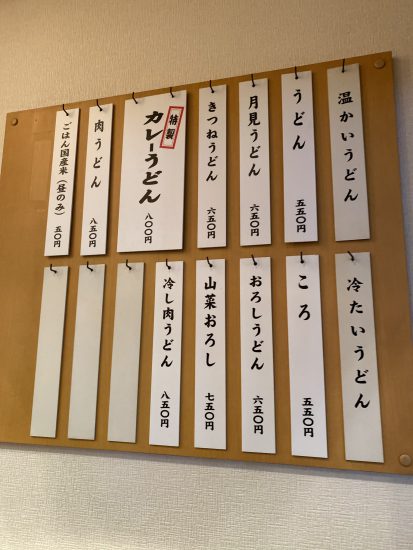 温かいうどん
うどん 五五〇円
月見うどん 六五〇円
きつねうどん 六五〇円
特製
カレーうどん 八〇〇円
肉うどん 八五〇円
ごはん国産米(昼のみ) 五〇円
冷たいうどん
ころ 五五〇円
おろしうどん 六五〇円
山菜おろし 七五〇円
冷し肉うどん 八五〇円